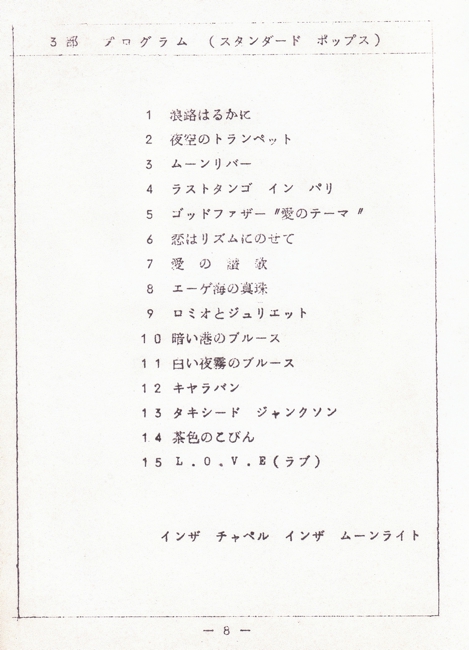 3部 プログラム (スタンダード ポップス)
1 浪路はるかに
2 夜空のトランペット
3 ムーンリバー
4 ラストタンゴ イン パリ
5 ゴッドファザー〃愛のテーマ〃
6 恋はリズムにのせて
7 愛の讃歌
8 エーゲ海の真珠
9 ロミオとジュリエット
10 暗い港のブルース
11 白い夜霧のブルース
12 キャラバン
13 タキシード ジャンクソン
14 茶色のこびん
15 L.O.V.E(ラブ)
インザ チャペル インザ ムーンライト
— 8 —